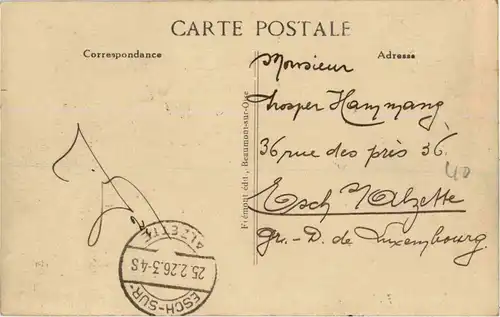 CARTE POSTALE
Correspondance
Adresse
Monsieur
Prosper Hammang
36 rue des prés 36
Esch s/Alzette
Gr.-D. de Luxembourg.
Frémont édit., Beaumont-sur-Oise
40
ESCH-SUR-ALZETTE
25.2.26.3-4S